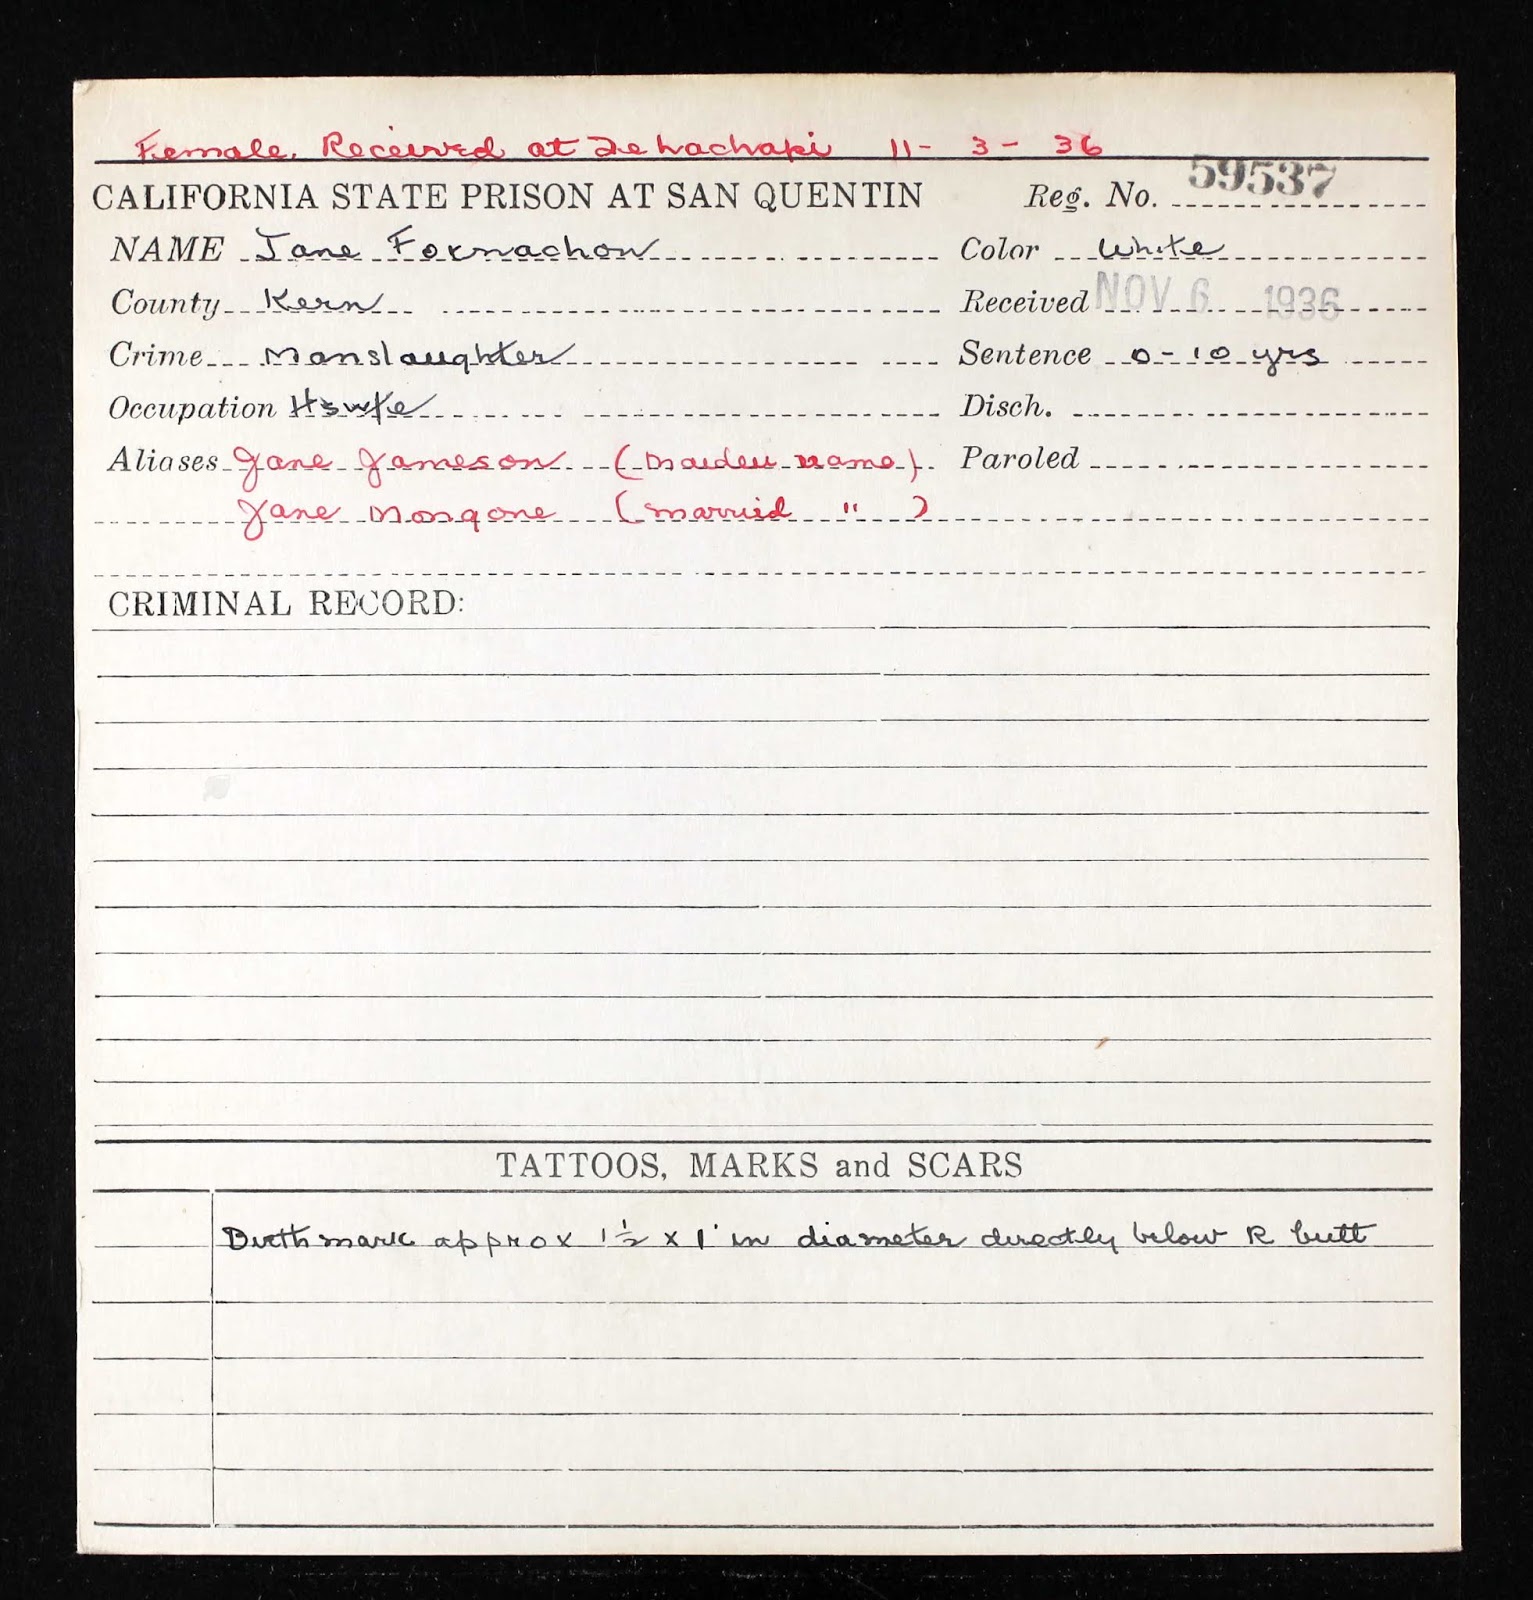 Female. Received at Tehachapi 11-3-36
CALIFORNIA STATE PRISON AT SAN QUENTIN Reg. No. 59537
NAME Jane Fornachon Color White
County Kern Received NOV 6 1936
Crime Manslaughter Sentence 0-10 yrs
Occupation Hswfe Disch.
Aliases Jane Jameson (maiden name) Paroled
Jane Mongone (married " )
CRIMINAL RECORD:
TATTOOS, MARKS and SCARS
Birthmark approx 1½ x 1" in diameter directly below R butt